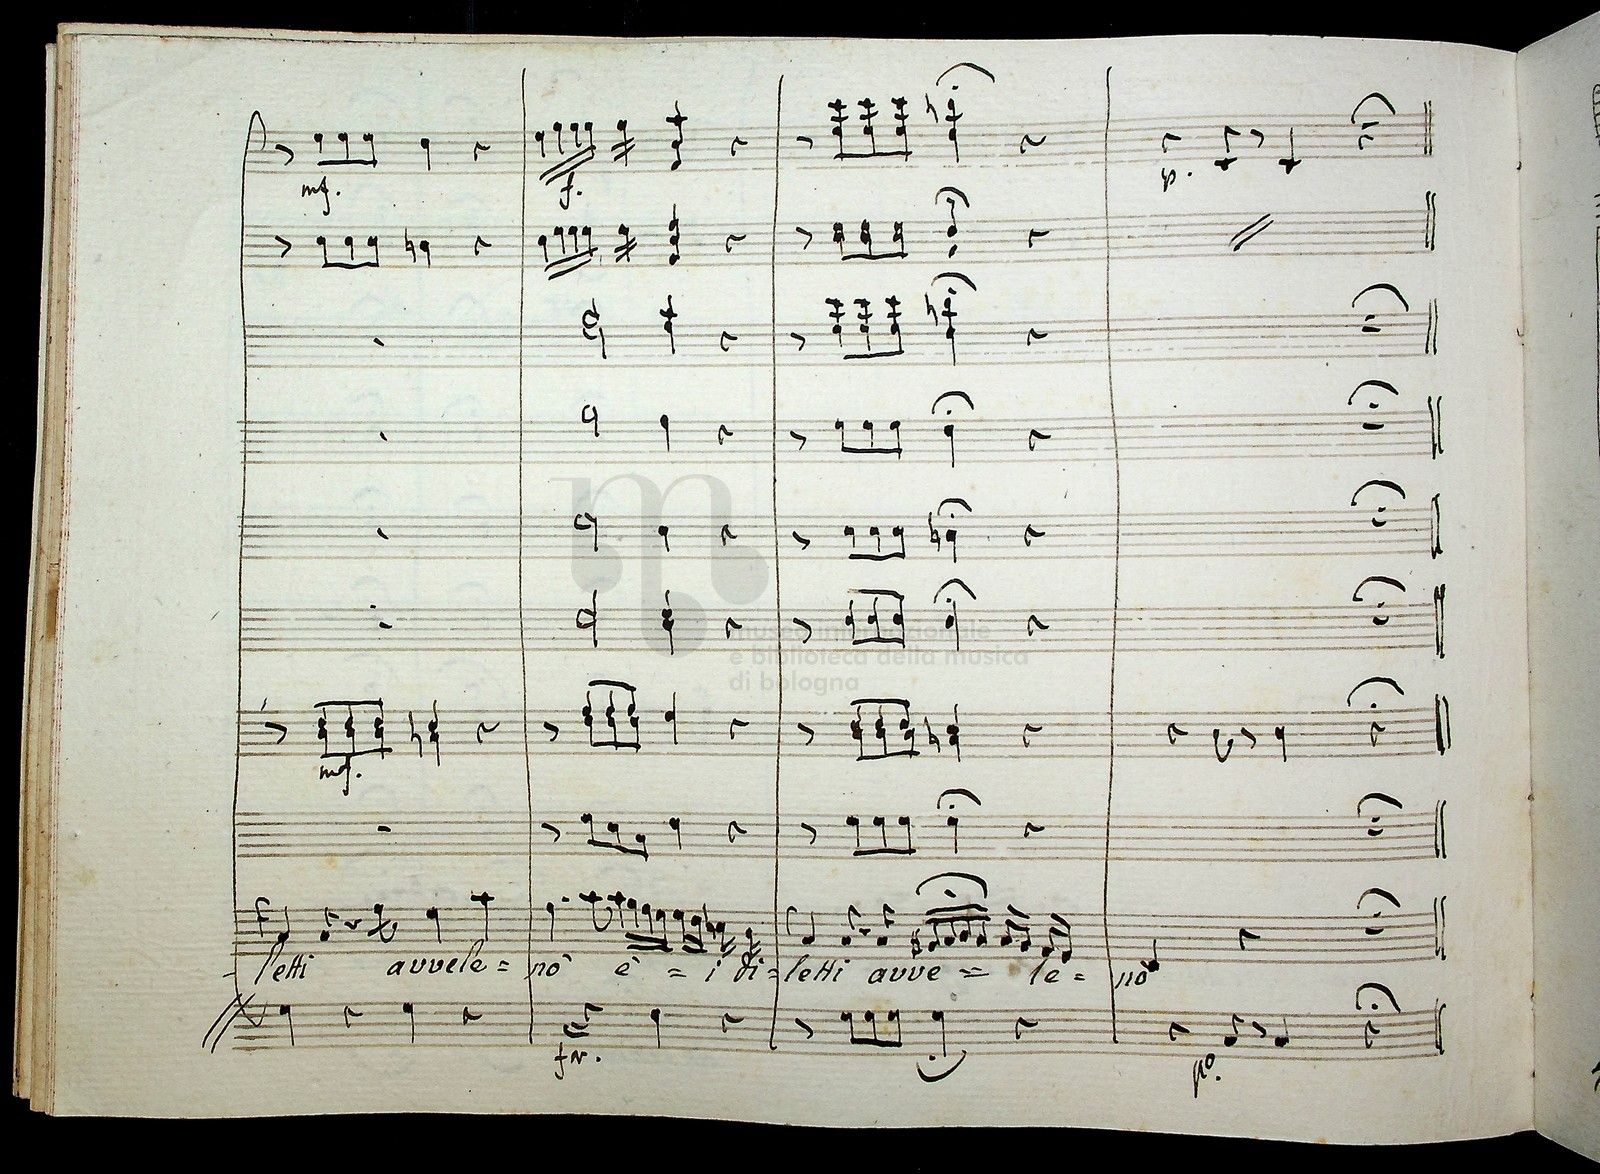 mf.
f.
p.
museo internazionale
e biblioteca della musica
di bologna
mf.
letti avvele = nò è = i di = letti avve = le = nò
po.